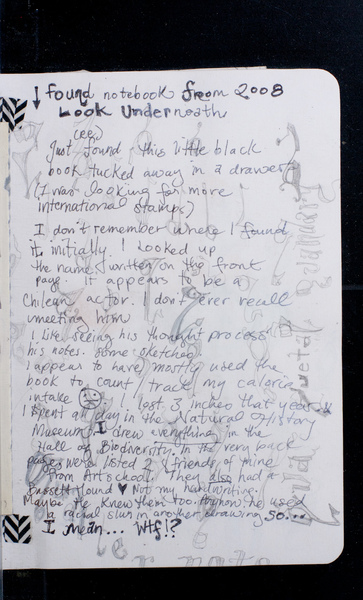 ↓ found notebook from 2008
Look Underneath
just found this little black
book tucked away in a drawer
(I was looking for more
international stamps)
I don't remember where I found
it initially. I looked up
the name written on the front
page - it appears to be a
Chilean actor. I don't ever recall
meeting him
I like seeing his thought process
his notes. some sketches
I appear to have mostly used the
book to count/track my calorie
intake ☹. I lost 3 inches that year
I spent all day in the Natural History
Museum. I drew everything in the
Hall of Biodiversity. In the very back
pages were listed 2 friends of mine
from Art school. They also had a
Bassett Hound ♥ Not my handwriting.
Maybe he knew them too. Anyhow he used
a racial slur in another drawing so...
I mean... Wtf!?